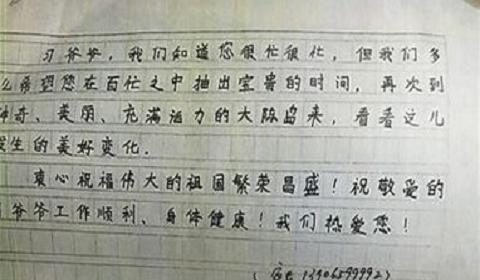 习爷爷，我们知道您很忙很忙，但我们多
么希望您在百忙之中抽出宝贵的时间，再次到
神奇、美丽、充满活力的大陈岛来，看看这儿
发生的美好变化.
衷心祝福伟大的祖国繁荣昌盛！祝敬爱的
习爷爷工作顺利、身体健康！我们热爱您！